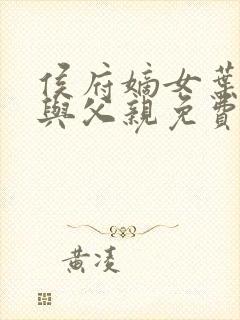 侯府嫡女葉
與父親免費
黃凌